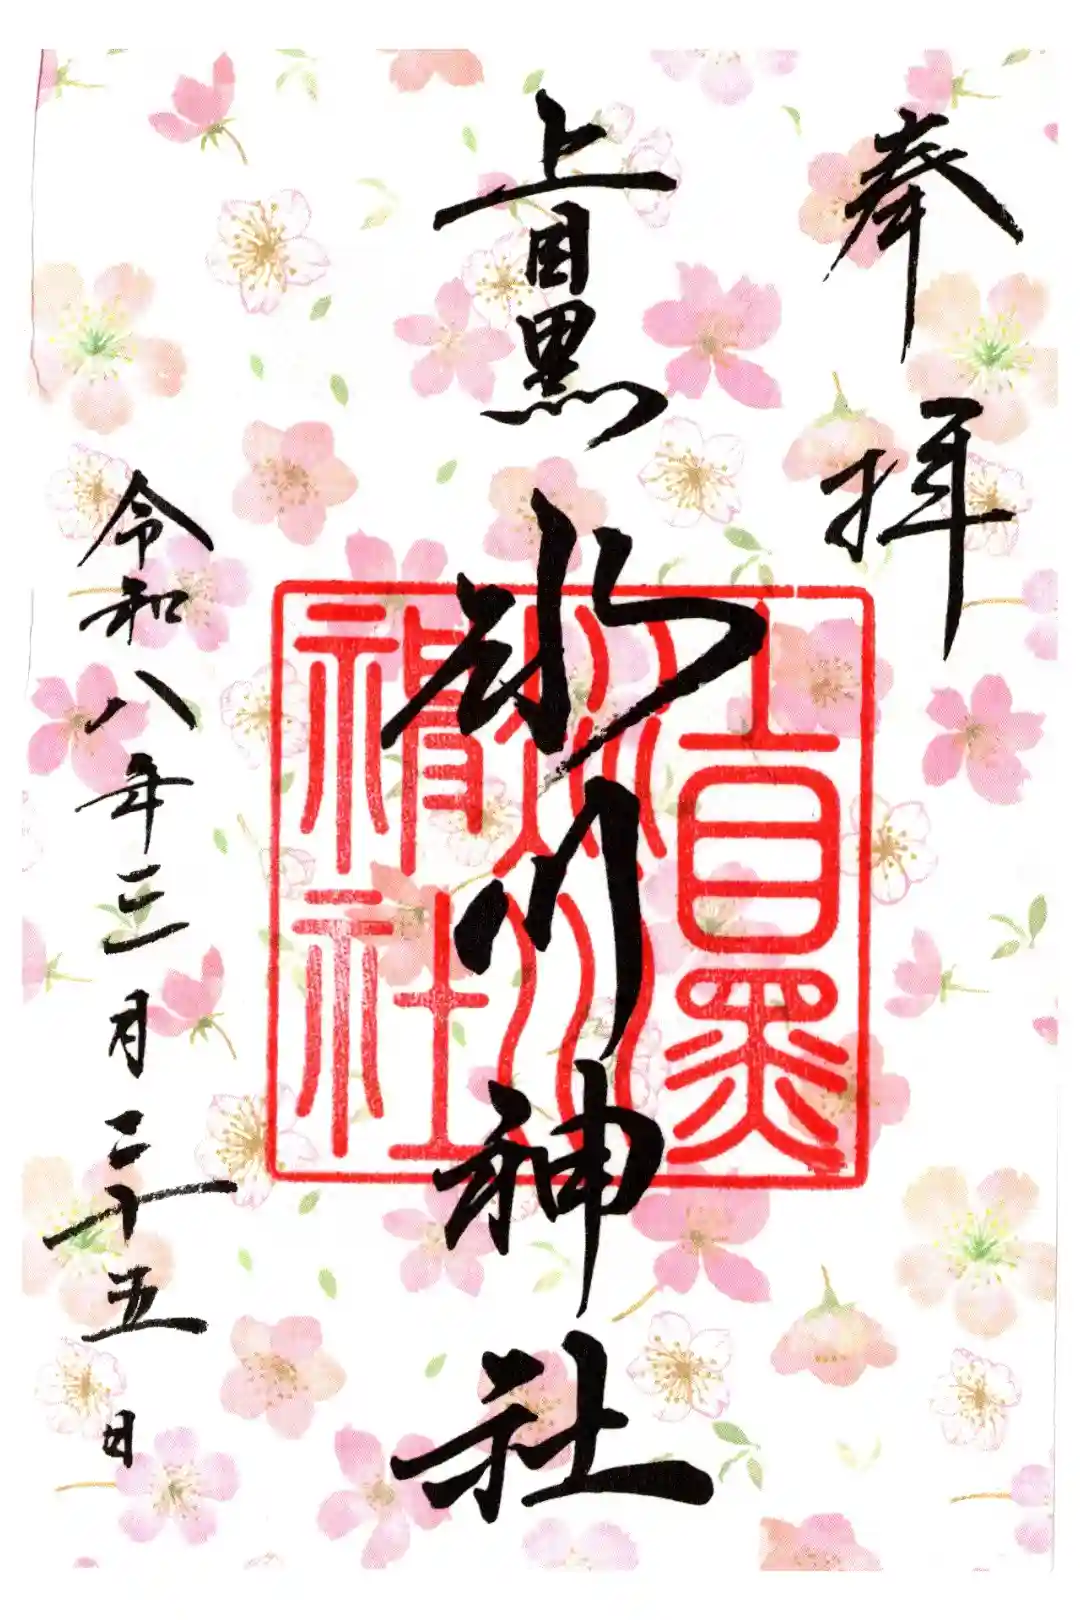 奉拝
上目黒
氷川神社
上目黒
氷川
神社
令和八年三月二十五日